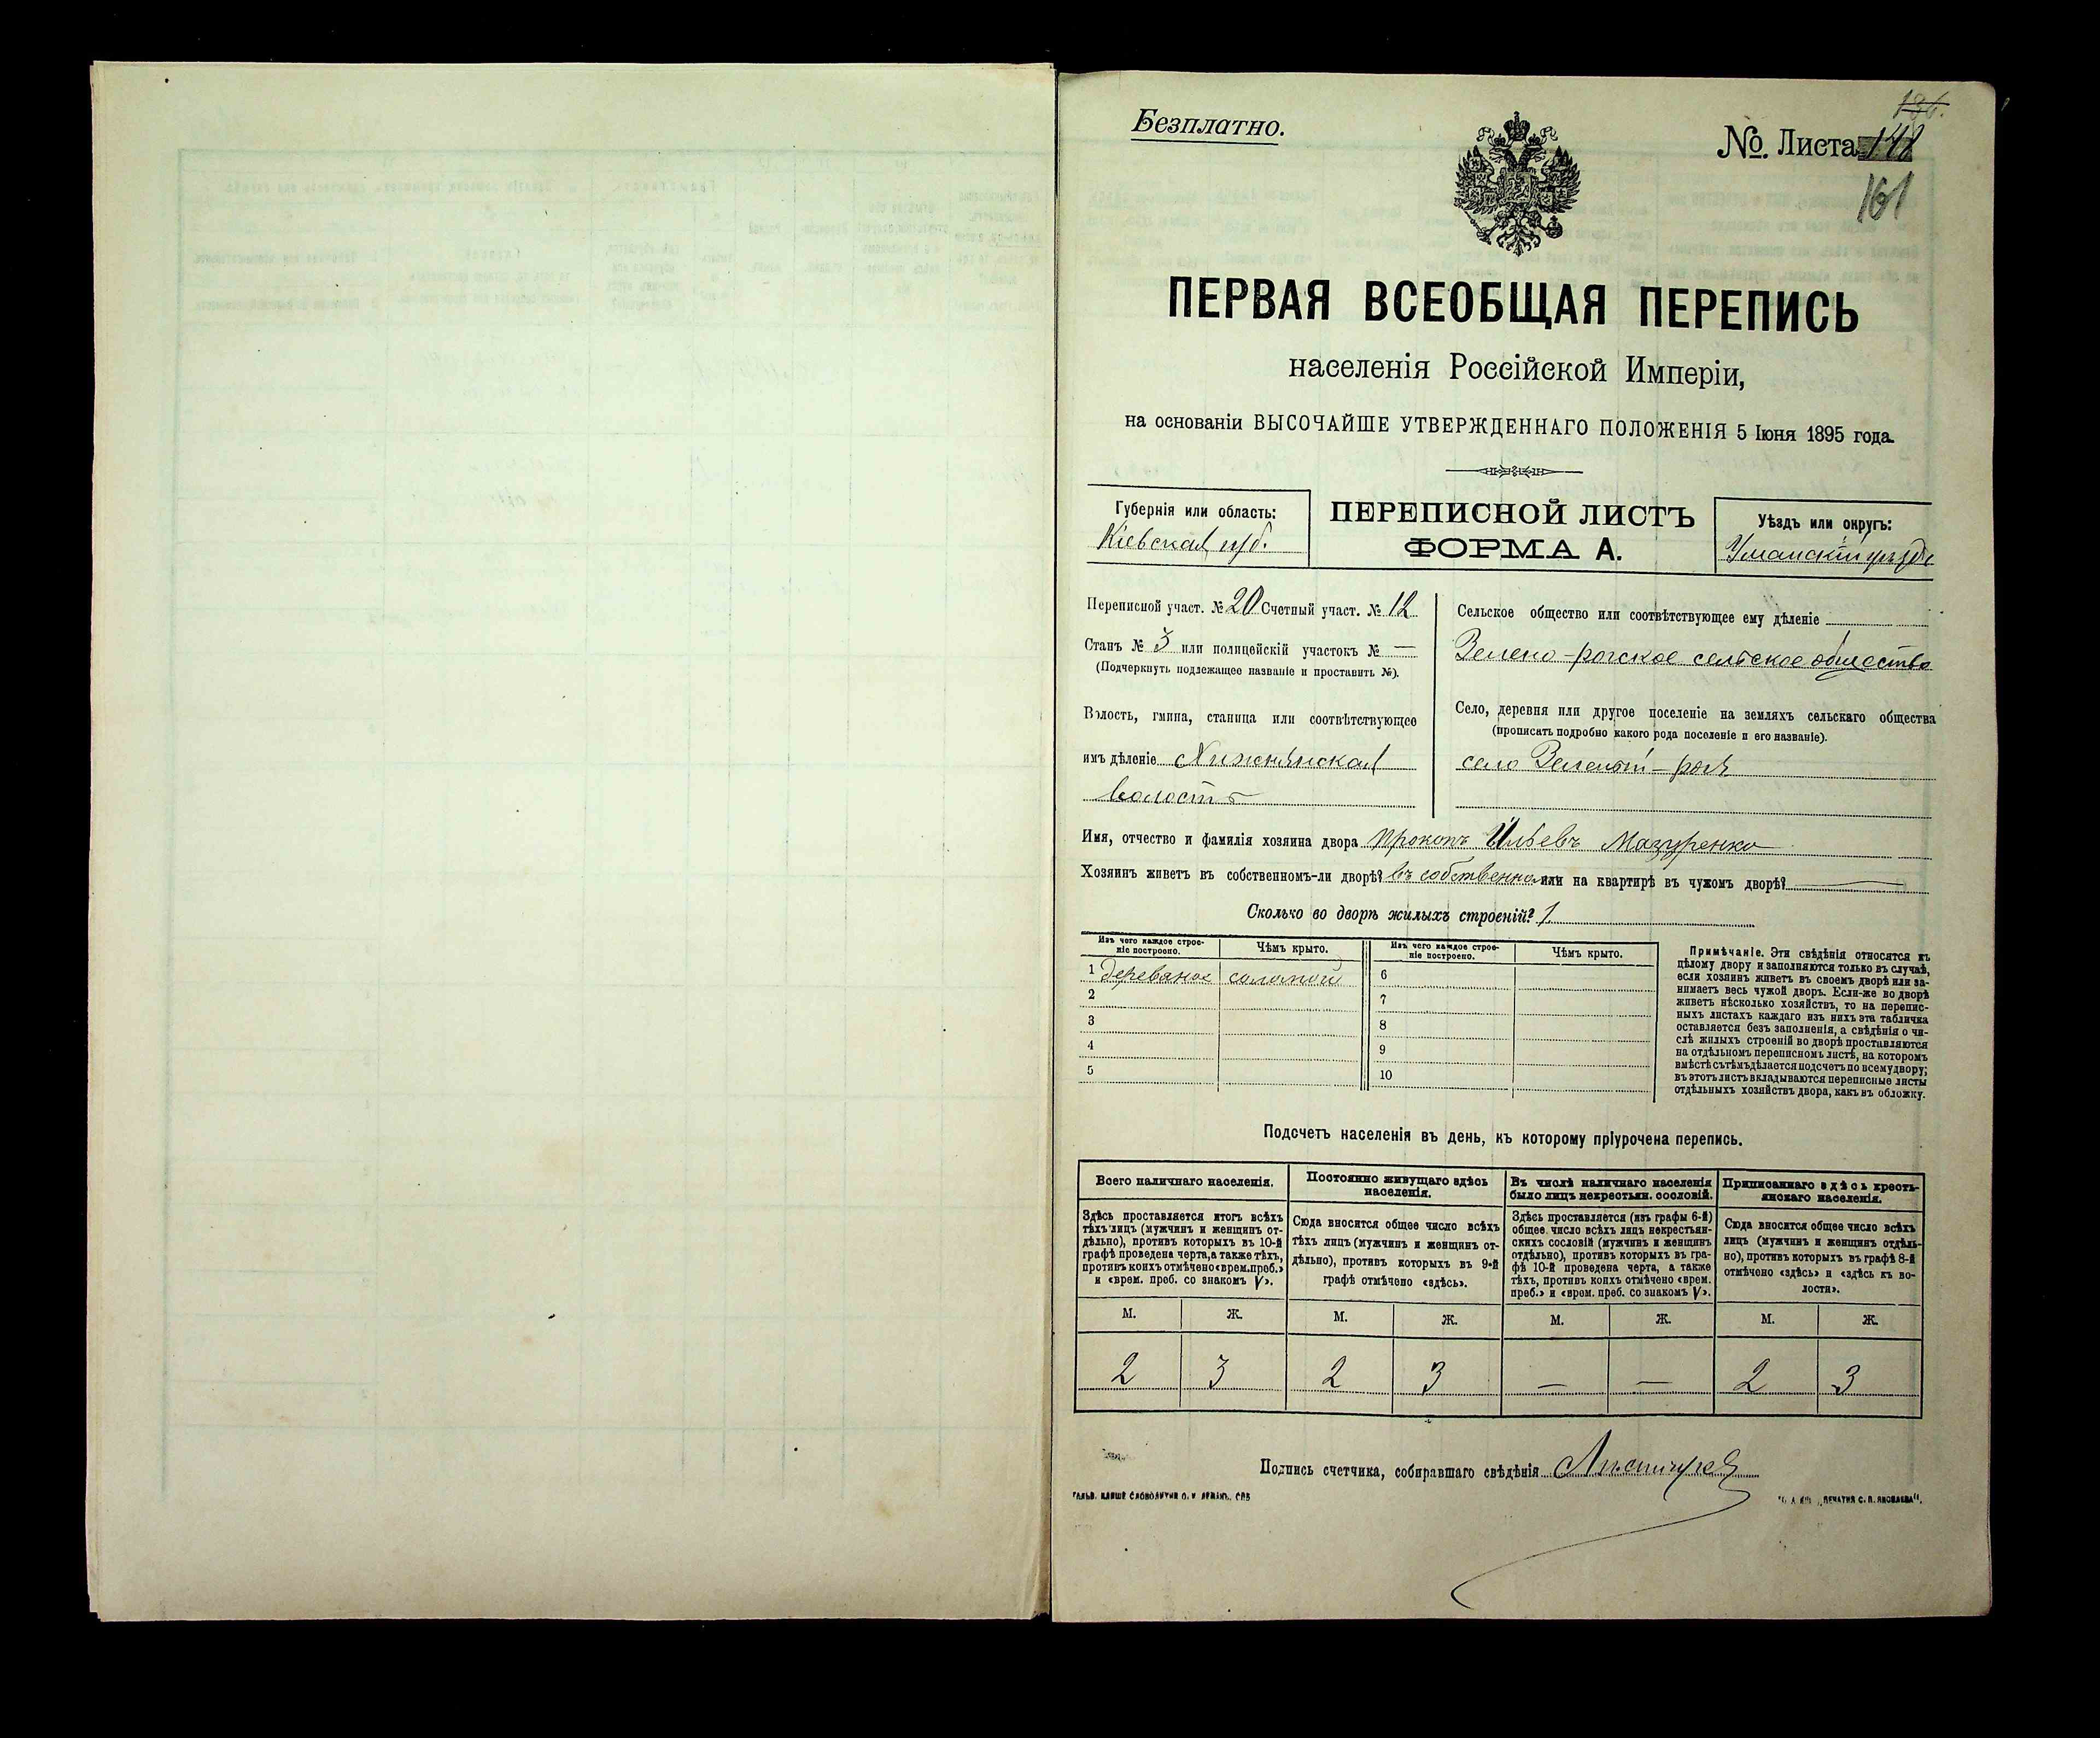 Безплатно.
136.
№. Листа 148
161
ПЕРВАЯ ВСЕОБЩАЯ ПЕРЕПИСЬ
населенія Россійской Имперіи,
на основаніи ВЫСОЧАЙШЕ УТВЕРЖДЕННАГО ПОЛОЖЕНІЯ 5 Іюня 1895 года.
Губернія или область:
Кіевская губ.
ПЕРЕПИСНОЙ ЛИСТЪ
ФОРМА А.
Уѣздъ или округъ:
Уманскій уѣздъ
Переписной участ. № 20 Счетный участ. № 12
Станъ № 3 или полицейскій участокъ № —
(Подчеркнуть подлежащее названіе и проставить №).
Волость, гмина, станица или соотвѣтствующее
имъ дѣленіе Хижнянская
волость
Сельское общество или соотвѣтствующее ему дѣленіе
Зелено-рогское сельское общество
Село, деревня или другое поселеніе на земляхъ сельскаго общества
(прописать подробно какого рода поселеніе и его названіе).
село Зеленый-рогъ
Имя, отчество и фамилія хозяина двора Прокопъ Ильевъ Мазуренко
Хозяинъ живетъ въ собственномъ-ли дворѣ? въ собственномъ или на квартирѣ въ чужомъ дворѣ? —
Сколько во дворѣ жилыхъ строеній? 1
Изъ чего каждое строе-
ніе построено.
Чѣмъ крыто.
1 деревяное соломой
2
3
4
5
Изъ чего каждое строе-
ніе построено.
Чѣмъ крыто.
6
7
8
9
10
Примѣчаніе. Эти свѣдѣнія относятся къ
цѣлому двору и заполняются только въ случаѣ,
если хозяинъ живетъ въ своемъ дворѣ или за-
нимаетъ весь чужой дворъ. Если-же во дворѣ
живетъ нѣсколько хозяйствъ, то на перепис-
ныхъ листахъ каждаго изъ нихъ эта табличка
оставляется безъ заполненія, а свѣдѣнія о чи-
слѣ жилыхъ строеній во дворѣ проставляются
на отдѣльномъ переписномъ листѣ, на которомъ
вмѣстѣ съ тѣмъ дѣлается подсчетъ по всему двору;
въ этотъ листъ вкладываются переписные листы
отдѣльныхъ хозяйствъ двора, какъ въ обложку.
Подсчетъ населенія въ день, къ которому пріурочена перепись.
Всего наличнаго населенія.
Здѣсь проставляется итогъ всѣхъ
тѣхъ лицъ (мужчинъ и женщинъ от-
дѣльно), противъ которыхъ въ 10-й
графѣ проведена черта, а также тѣхъ,
противъ коихъ отмѣчено «врем. преб.»
и «врем. преб. со знакомъ V».
Постоянно живущаго здѣсь
населенія.
Сюда вносится общее число всѣхъ
тѣхъ лицъ (мужчинъ и женщинъ от-
дѣльно), противъ которыхъ въ 9-й
графѣ отмѣчено «здѣсь».
Въ числѣ наличнаго населенія
было лицъ некрестьян. сословій.
Здѣсь проставляется (изъ графы 6-й)
общее число всѣхъ лицъ некрестьян-
скихъ сословій (мужчинъ и женщинъ
отдѣльно), противъ которыхъ въ гра-
фѣ 10-й проведена черта, а также
тѣхъ, противъ коихъ отмѣчено «врем.
преб.» и «врем. преб. со знакомъ V».
Приписаннаго здѣсь кресть-
янскаго населенія.
Сюда вносится общее число всѣхъ
лицъ (мужчинъ и женщинъ отдѣль-
но), противъ которыхъ въ графѣ 8-й
отмѣчено «здѣсь» и «здѣсь къ во-
лости».
М. Ж. М. Ж. М. Ж. М. Ж.
2 3 2 3 — — 2 3
Подпись счетчика, собиравшаго свѣдѣнія